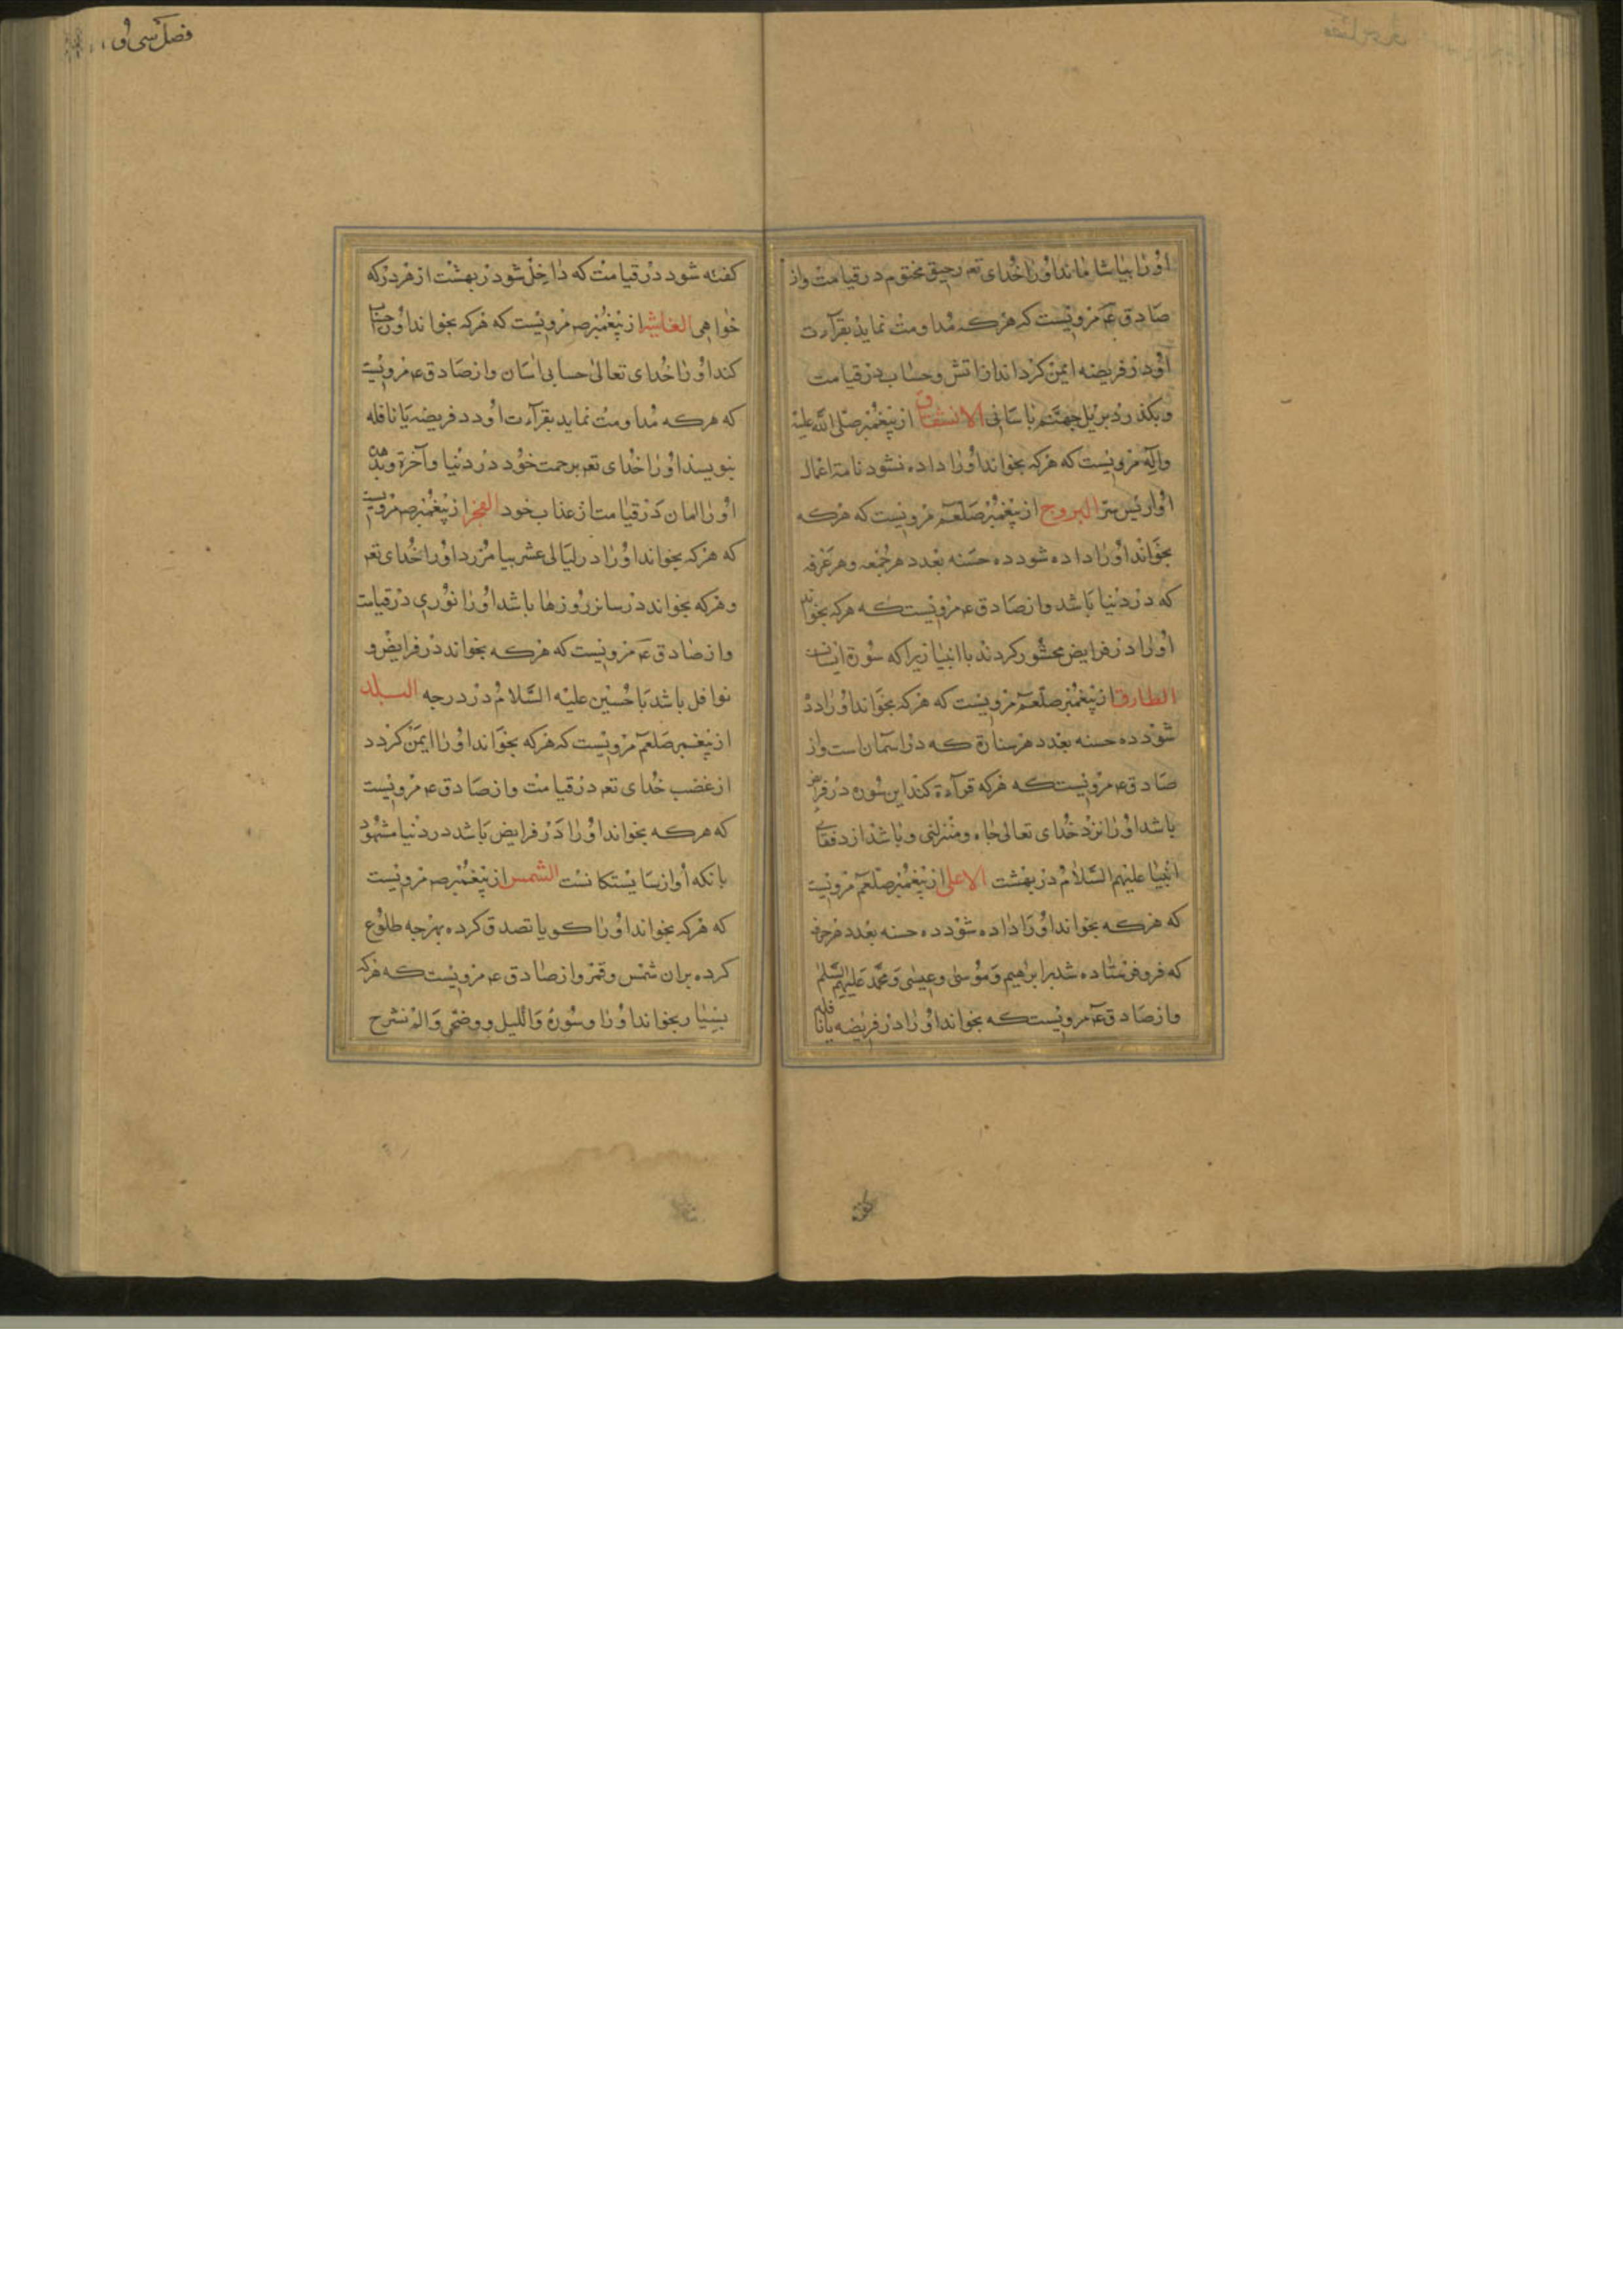 اورا بیاشاماند اورا خدای تعم رحیق مختوم در قیامت واز
صادق عم مرویست که هرکه مداومت نماید بقرآءت
او در فریضه ایمن کرداند از اتش وحساب در قیامت
وبکذرد بر پل جهنم باسانی الانشقاق از پیغمبر صلی الله علیه
وآله مرویست که هرکه بخواند اورا داده نشود نامۀ اعمال
او از پس سر البروج از پیغمبر صلعم مرویست که هرکه
بخواند اورا داده شود ده حسنه بعدد هر جمعه وهر عرفه
که در دنیا باشد واز صادق عم مرویست که هرکه بخواند
اورا در فرایض محشور کردند با انبیا زیرا که سورۀ ایشانست
الطارق از پیغمبر صلعم مرویست که هرکه بخواند اورا داده
شود ده حسنه بعدد هر ستارۀ که در اسمان است واز
صادق عم مرویست که هرکه قرآءة کند این سوره در فرایض
باشد اورا نزد خدای تعالی جاه ومنزلتی وباشد از رفقای
انبیا علیهم السلام در بهشت الاعلی از پیغمبر صلعم مرویست
که هرکه بخواند اورا داده شود ده حسنه بعدد هر حرفی
که فرو فرستاده شد بر ابرهیم وموسی وعیسی ومحمد علیهم السلم
واز صادق عم مرویست که بخواند اورا در فریضه یا نافله
کفته
فصل سی و
کفته شود در قیامت که داخل شو در بهشت از هر در که
خواهی الغاشیه از پیغمبر صم مرویست که هرکه بخواند اورا حساب
کند اورا خدای تعالی حسابی اسان واز صادق عم مرویست
که هرکه مداومت نماید بقرآءت او در فریضه یا نافله
بنویسند اورا خدای تعم برحمت خود در دنیا وآخرة وبدهد
اورا امان در قیامت از عذاب خود الفجر از پیغمبر صم مرویست
که هرکه بخواند اورا در لیالی عشر بیامرزد اورا خدای تعم
وهرکه بخواند در سایر روزها باشد اورا نوری در قیامت
واز صادق عم مرویست که هرکه بخواند در فرایض و
نوافل باشد با حسین علیه السلام در درجه البلد
از پیغمبر صلعم مرویست که هرکه بخواند اورا ایمن کردد
از غضب خدای تعم در قیامت واز صادق عم مرویست
که هرکه بخواند اورا در فرایض باشد در دنیا مشهود
بانکه او از شایستکانست الشمس از پیغمبر صم مرویست
که هرکه بخواند اورا کویا تصدق کرده بهرچه طلوع
کرده بران شمس وقمر واز صادق عم مرویست که هرکه
بسیار بخواند اورا وسورۀ واللیل ووضحی والم نشرح